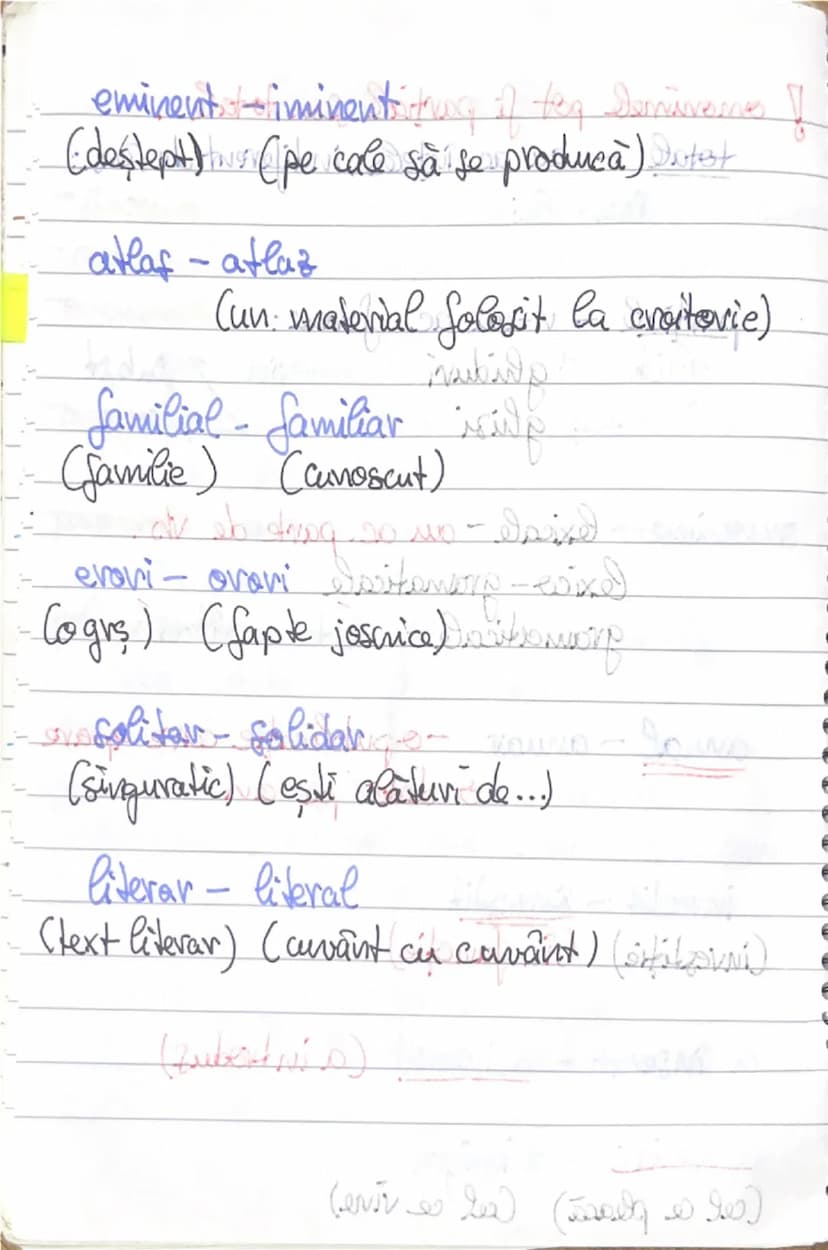 eminent – iminent
(deștept) (pe cale să se producă)
atlas – atlaz
(un material folosit la croitorie)
familial – familiar
(familie) (cunoscut)
erori – orori
(o grș) (fapte josnice)
solitar – solidar
(singuratic) (ești alături de...)
literar – literal
(text literar) (cuvânt cu cuvânt)